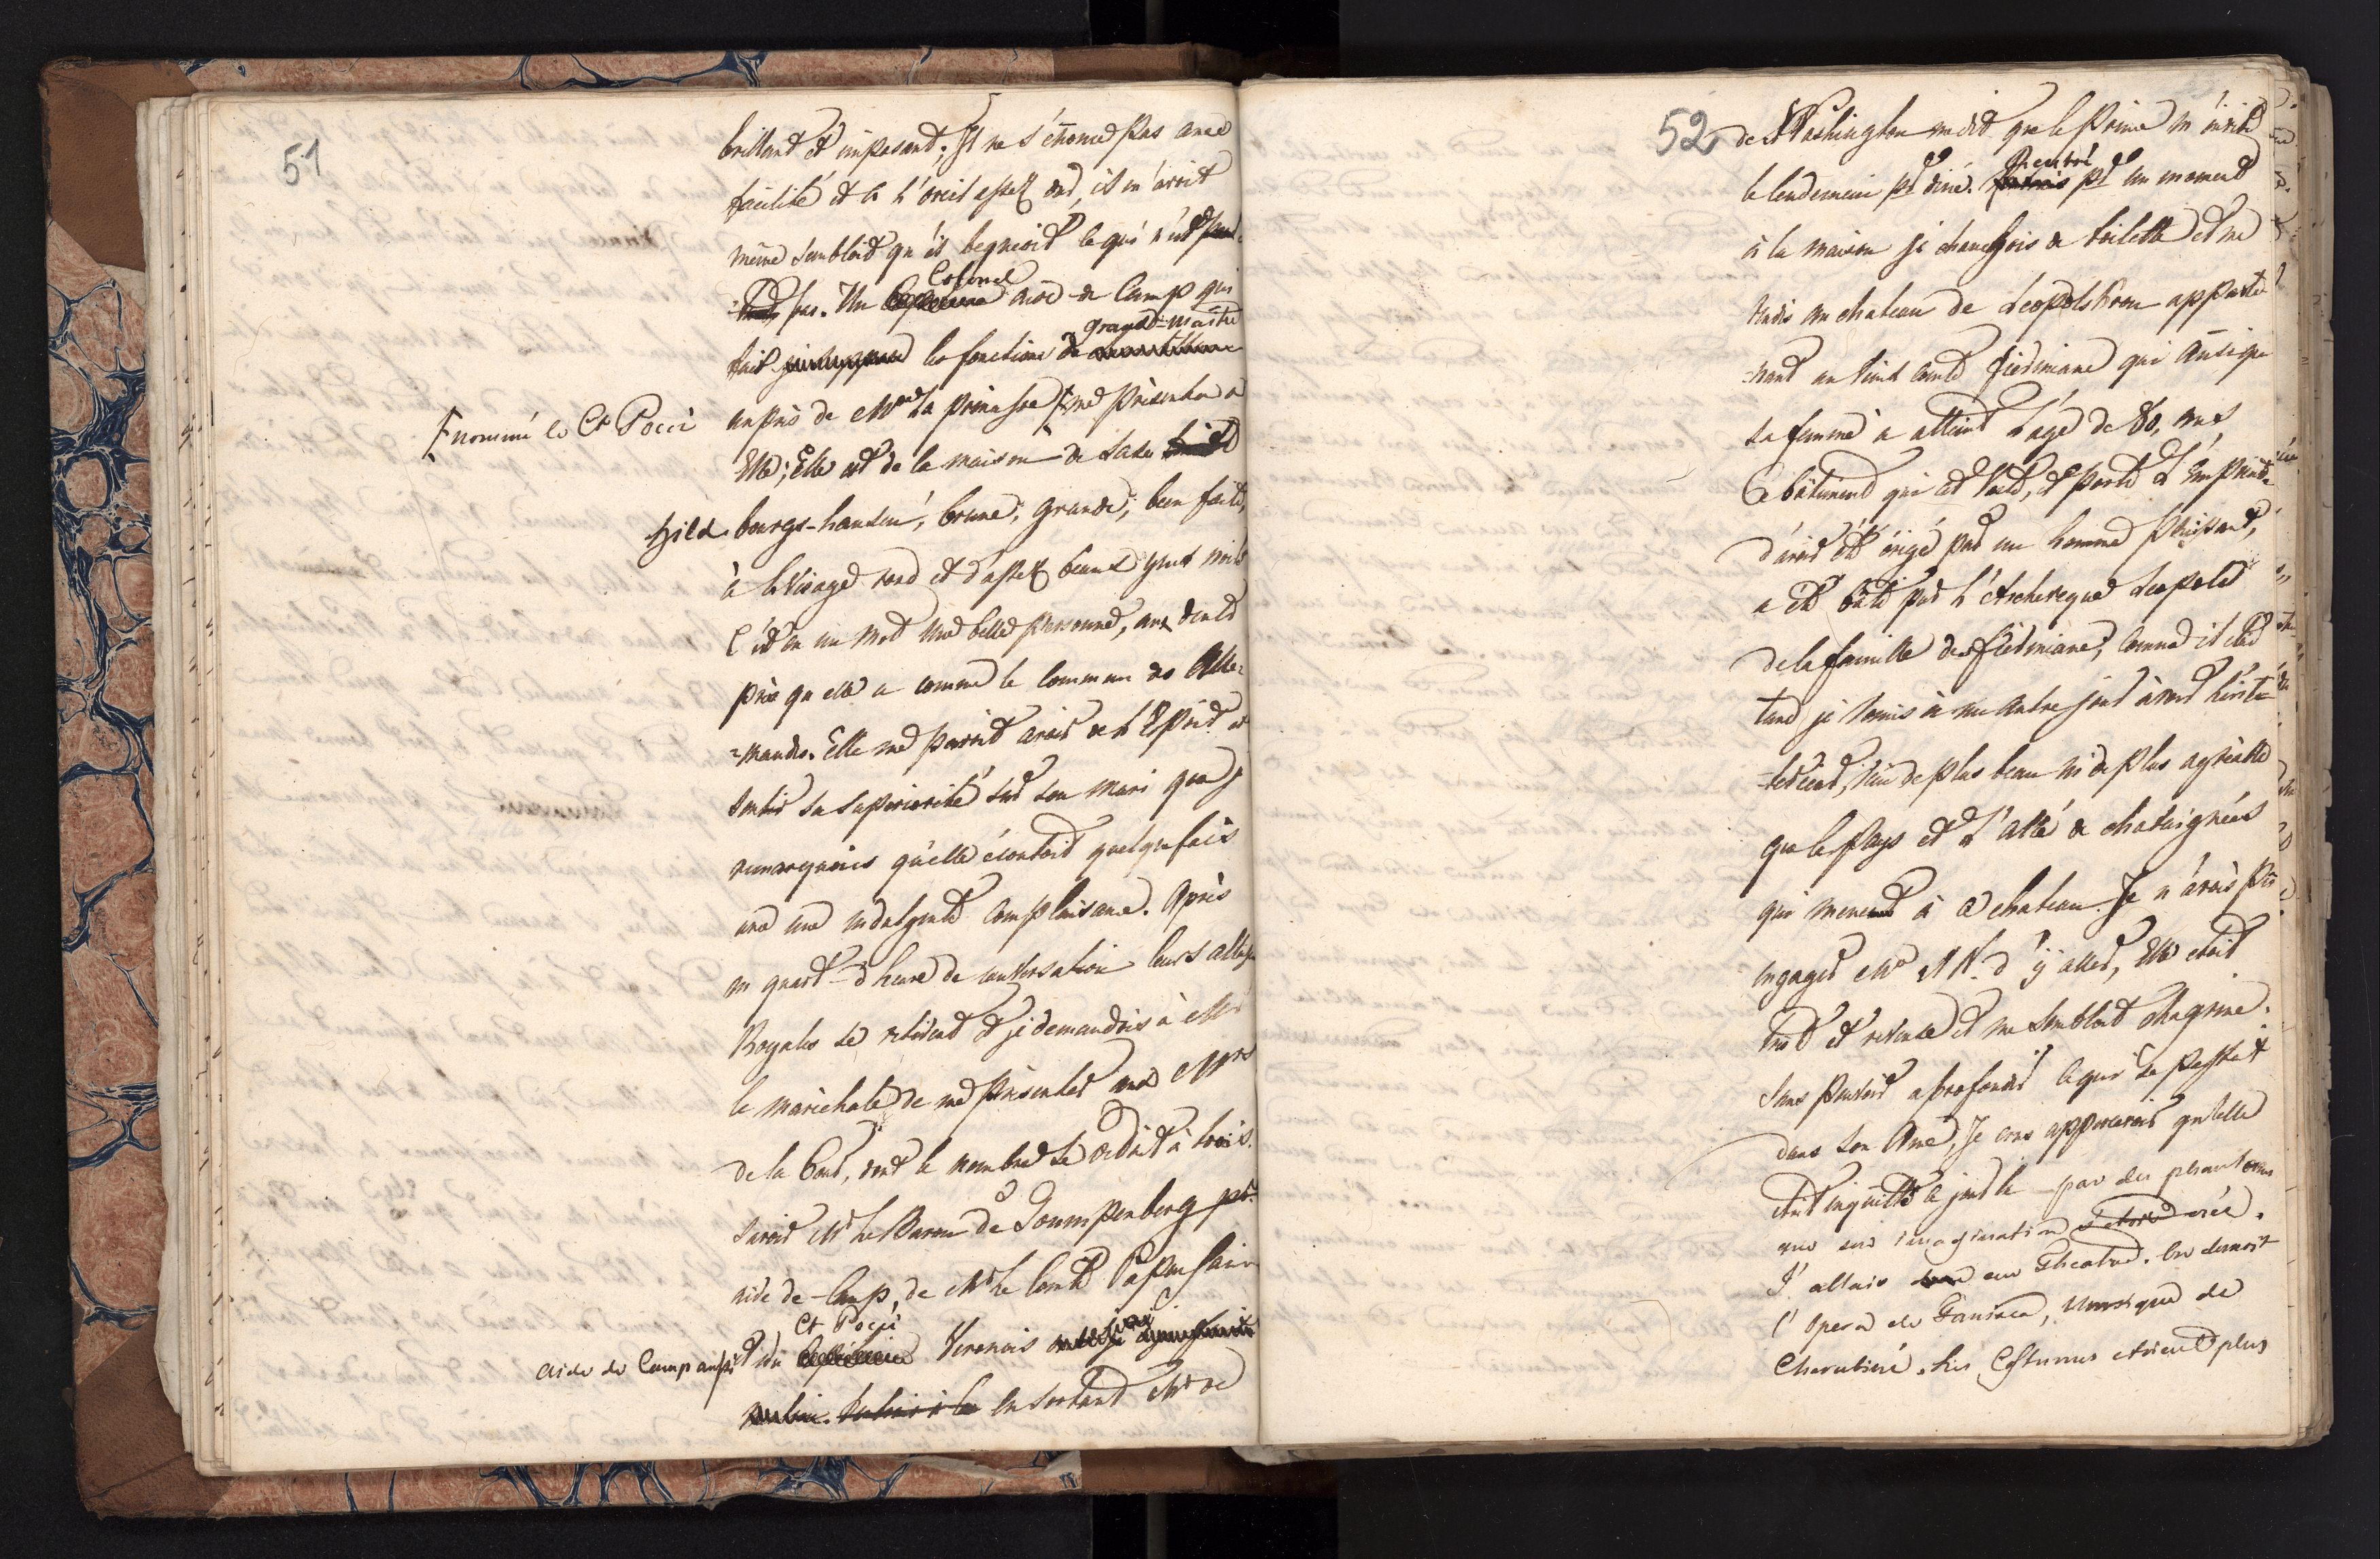 51
brillant et imposant; Il ne s'enonce pas avec
facilité et a l'oreil assez dur, il m'avoit
même semblait qu'il begueioit ce qui n'est
pas. Un Colonel aide de Camp qui
fait les fonctions de grand=maitre
auprès de Mme la princesse me présenta a
[nommé le Ct Pocci
Elle; Elle est de la maison de Saxe
Hild bourgs-hausen, brune, grande, bien faite,
à le visage rond et d'assez beaux yeux noirs
C'est en un mot une belle personne, aux dents
près qu'elle a comme le commun des Alle=
=mandes. Elle me paroit avoir de l'Esprit et
sentir sa superiorité sur son mari que je
remarquois qu'elle écoutoit quelquefois
avec une indulgente complaisance. Après
un quart-d'heure de conversation leurs altesses
Royales se retirent et je demandois à Mr
le marèchale de me présenter aux Mrs
de la Cour, dont le nombre se redoit à trois.
Savoir Mr le Baron de Goumpenberg pr.
aide de-Camp, de Mr le Comte Papenhaim
aide de Camp aussi et du Ct Pocci Veronois
En sortant Mr de
52
de Washington me dit que le Prince m'invite
le lendemain pr diné. Rentré pr un moment
à la maison je changeois de toilette et me
rendis au chateau de Léopolskron apparte
=nant au vieux comte Firdmiane qui ainsi que
sa femme a atteint l'age de 80, ans
Ce bâtiment qui est vaste, et porte l'empreinte
d'avoir été érigé par un homme puissant,
a été bâti par l'Archeveque Leopold
de la famille des Firdmiane, comme il etoit
tard je remis à un autre jour à voir l'inte
=rieur, rien de plus beau ni de plus agréable
que le pays et l'allé de chataignés
qui menent à ce chateau. Je n'avois pu
engager Me N N. d'ÿ aller, Elle etoit
triste et retenue et me sembloit chagrine.
Sans pouvoir aprofondir ce qui se passoit
dans son Ame, Je crus appercevoir qu'elle
etoit inquiette par des phantomes
que son imagination créé.
J'allais au Theatre. On donnoit
l'Opera de Faniska, Musique de
Cherubini. Les Costumes etoient plus